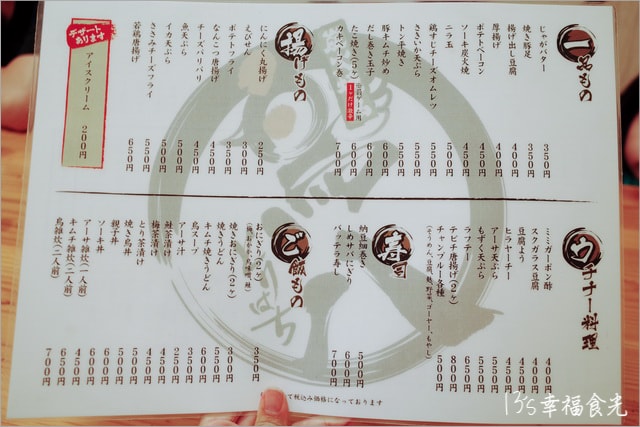 一品もの
じゃがバター 350円
焼き豚足
揚げ出し豆腐 400円
厚揚げ 400円
ポテトベーコン 400円
ソーキ炭火焼 450円
ニラ玉
鶏すじチーズオムレツ
ささいか天ぷら
トン平焼き 550円
豚キムチ炒め
だし巻き玉子
たこ焼き(5ヶ) 600円
ベーコン巻 700円
揚げもの
にんにく丸揚げ 250円
えびせん 300円
ポテトフライ 300円
チーズバリバリ 400円
なんこつ唐揚げ 450円
魚天ぷら 500円
イカ天ぷら 500円
ささみチーズフライ 550円
若鶏唐揚げ 650円
デザートあります
アイスクリーム 200円
ウチナー料理
ミミガーポン酢 400円
スクガラス豆腐 400円
豆腐よう 450円
ヒラヤーチー 450円
アーサ天ぷら 550円
もずく天ぷら 550円
ラフテー 650円
テビチ唐揚げ(2ヶ) 800円
チャンプルー各種 500円
(そうめん、豆腐、麩、野菜、ゴーヤー、もやし)
寿司
納豆細巻き 500円
しめサバにぎり 600円
バッテラすし 700円
ご飯もの
おにぎり(2ヶ) 350円
焼きおにぎり(2ヶ) 300円
焼きうどん 500円
キムチ焼きうどん 600円
鳥スープ 350円
アーサ汁 250円
鮭茶漬け 450円
梅茶漬け 450円
とり茶漬け 500円
焼き鳥丼 500円
親子丼
ソーキ丼 600円
アーサ雑炊(一人前) 450円
キムチ雑炊(二人前) 650円
鳥雑炊(二人前) 700円
て税込み価格になっております
13's幸福食光